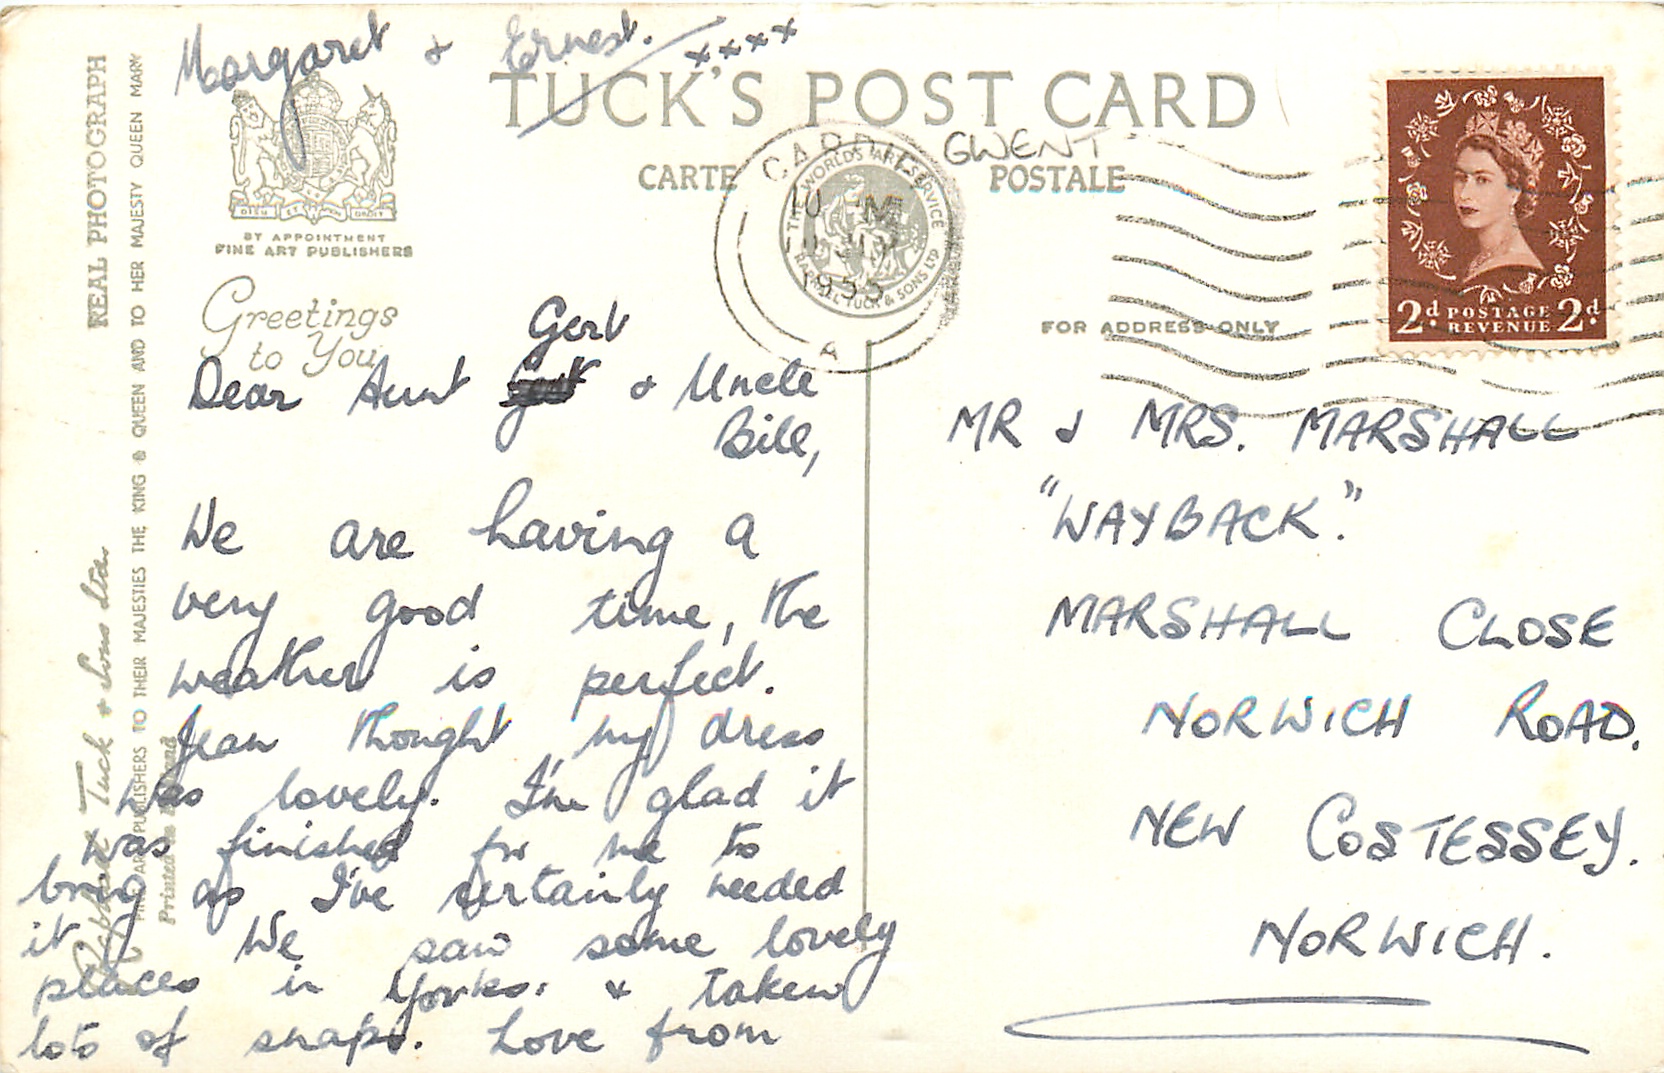 Margaret & Ernest. xxxx
TUCK'S POST CARD
CARTE POSTALE
GWENT
CARDIFF
1955
A
THE WORLD'S ART SERVICE
RAPHAEL TUCK & SONS LTD
DIEU ET MON DROIT
BY APPOINTMENT
FINE ART PUBLISHERS
Greetings
to You
FOR ADDRESS ONLY
2d POSTAGE REVENUE 2d
REAL PHOTOGRAPH
Raphael Tuck & Sons Ltd
FINE ART PUBLISHERS TO THEIR MAJESTIES THE KING & QUEEN AND TO HER MAJESTY QUEEN MARY
Printed in England
Gert
Dear Aunt & Uncle
Bill,
We are having a
very good time, the
weather is perfect.
Jean thought my dress
was lovely. I'm glad it
was finished for me to
bring as I've certainly needed
it. We saw some lovely
places in Yorks. & taken
lots of snaps. Love from
MR & MRS. MARSHALL
"WAYBACK."
MARSHALL CLOSE
NORWICH ROAD.
NEW COSTESSEY.
NORWICH.